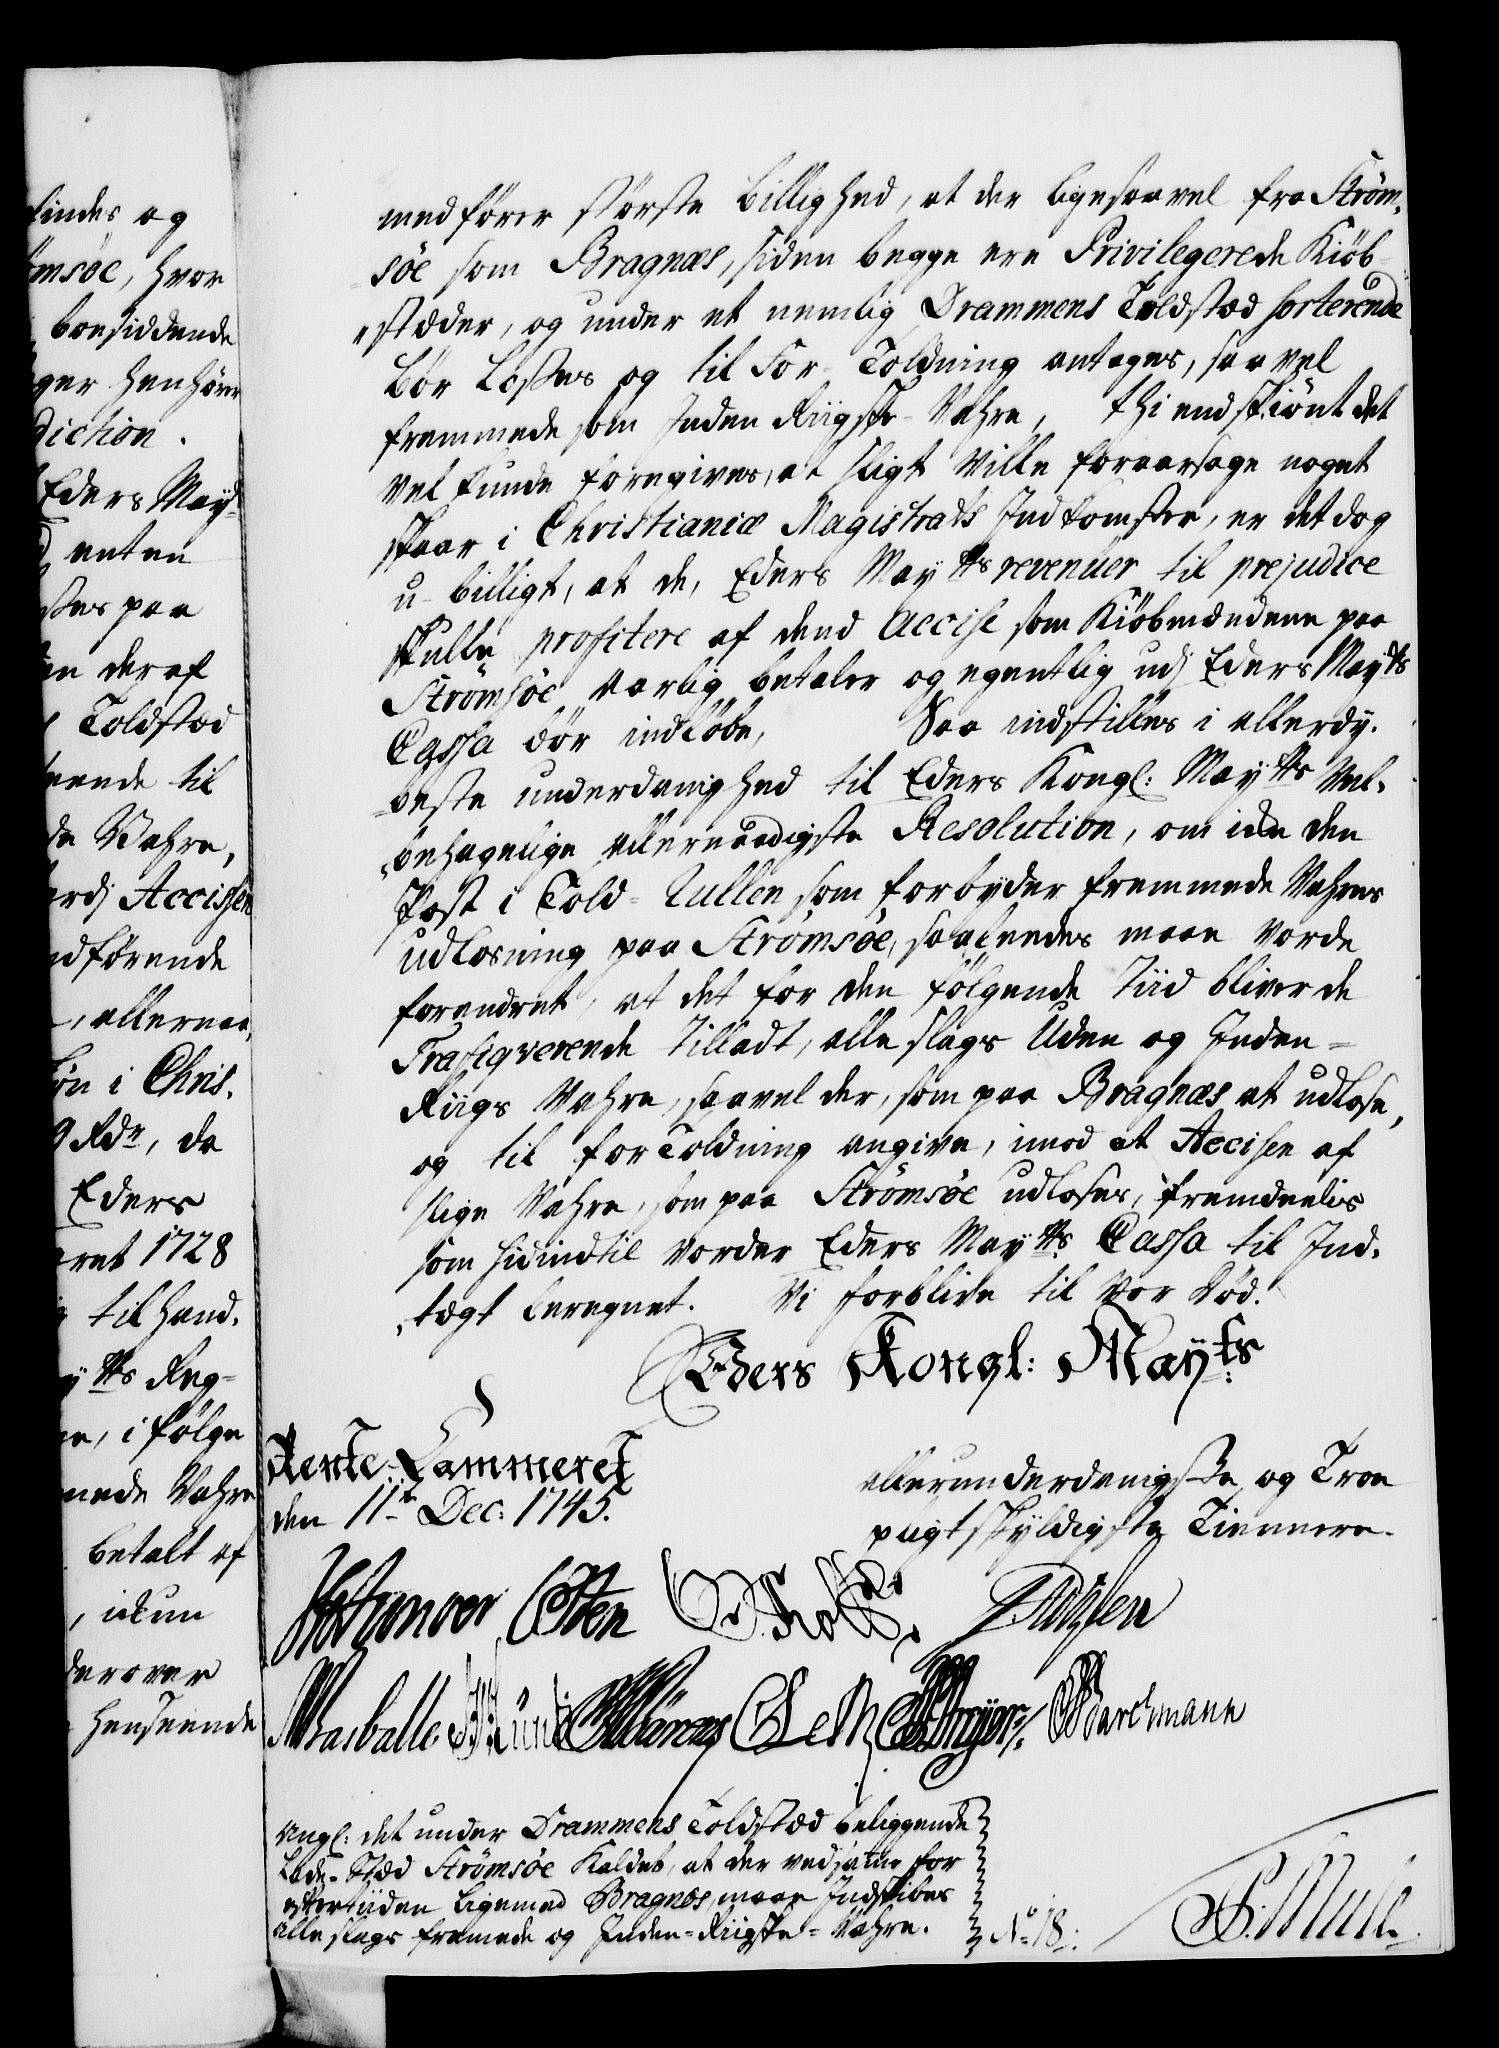 findes og
ømsöe, hvor
boesiddende
ger henhörer
diction.
Eders May
enten
stes paa
en deraf
Toldstæd
eende til
de Vahre,
Accissen
dförende
, allernaa,
i Chris,
Rdr, da
Eders
aret 1728
til hand,
ytts Reg=
e, i fölge
mede Vahre
betalt af
, iktun
derover
henseende
medförer störste billighed, at der ligesaavel fra Ström,
söe som Bragnæs, siden begge ere Privilegerede Kiöb
stæder, og under et nemlig Drammens Toldstæd sorterende
bör losses og til For-Toldning antages, saavel
fremmede som Inden Riigske-Vahre, thi endskiönt det
vel kunde foregives, at sligt ville foraarsage noget
skaar i Christianiæ Magistrats Indkomster, er det dog
u-billigt, at de, Eders Maytts revenüer til prejudice
skulle profitere af dend Accise som Kiöbmændene paa
Strömsöe Aarlig betaler og egentlig udj Eders Maytts
Cassa bör indlöbe, Saa indstilles i allerdy,
beste underdanighed til Eders Kongl: Maytts Vel,
behagelige allernaadigste Resolution, om icke den
Post i Told-Rullen som forbyder fremmede Vahres
udlosning paa Strömsöe, saaleedes maae vorde
forandret, at det for den fölgende Tiid bliver de
Trafiqverende tilladt, alle slags Uden og Inden=
Riigs Vahre, saavel der, som paa Bragnæs at udlose,
og til forToldning angive, imod at Accisen af
slige Vahre, som paa Strömsöe udloses, fremdeelis
som hidindtil vorder Eders Maytts Cassa til Ind,
tægt beregnet. Vi forblive til vor Död.
Eders Kongl: Mayts:
Rente-Cammeret
den 11te Dec: 1745.
allerunderdanigste og Troe
pligtskyldigste Tiennere.
Osten Holst
Rasballe
Bartmann
Angl: det under Drammens Toldstæd beliggende
Lade-Stæd Strömsöe kaldet, at der ved samme for
eftertiiden ligemed Bragnæs, maae Indskibes
alle slags fremede og Inden=Riigske=Vahre.
No 18.